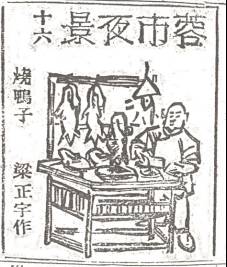 蓉市夜景
十六
燒鴨子
梁正宇作